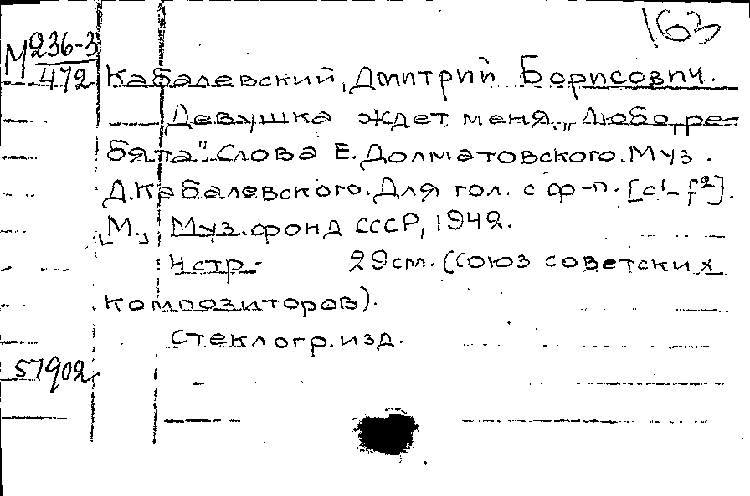 163
М 236-3
472
Кабалевский, Дмитрий Борисович.
Девушка ждет меня. „Любо, ре-
бята". Слова Е. Долматовского. Муз.
Д. Кабалевского. Для гол. с ф-п. [c¹- f²].
[М.], Муз. фонд СССР, 1942.
4 стр. 29 см. (Союз советских
композиторов).
Стеклогр. изд.
57902